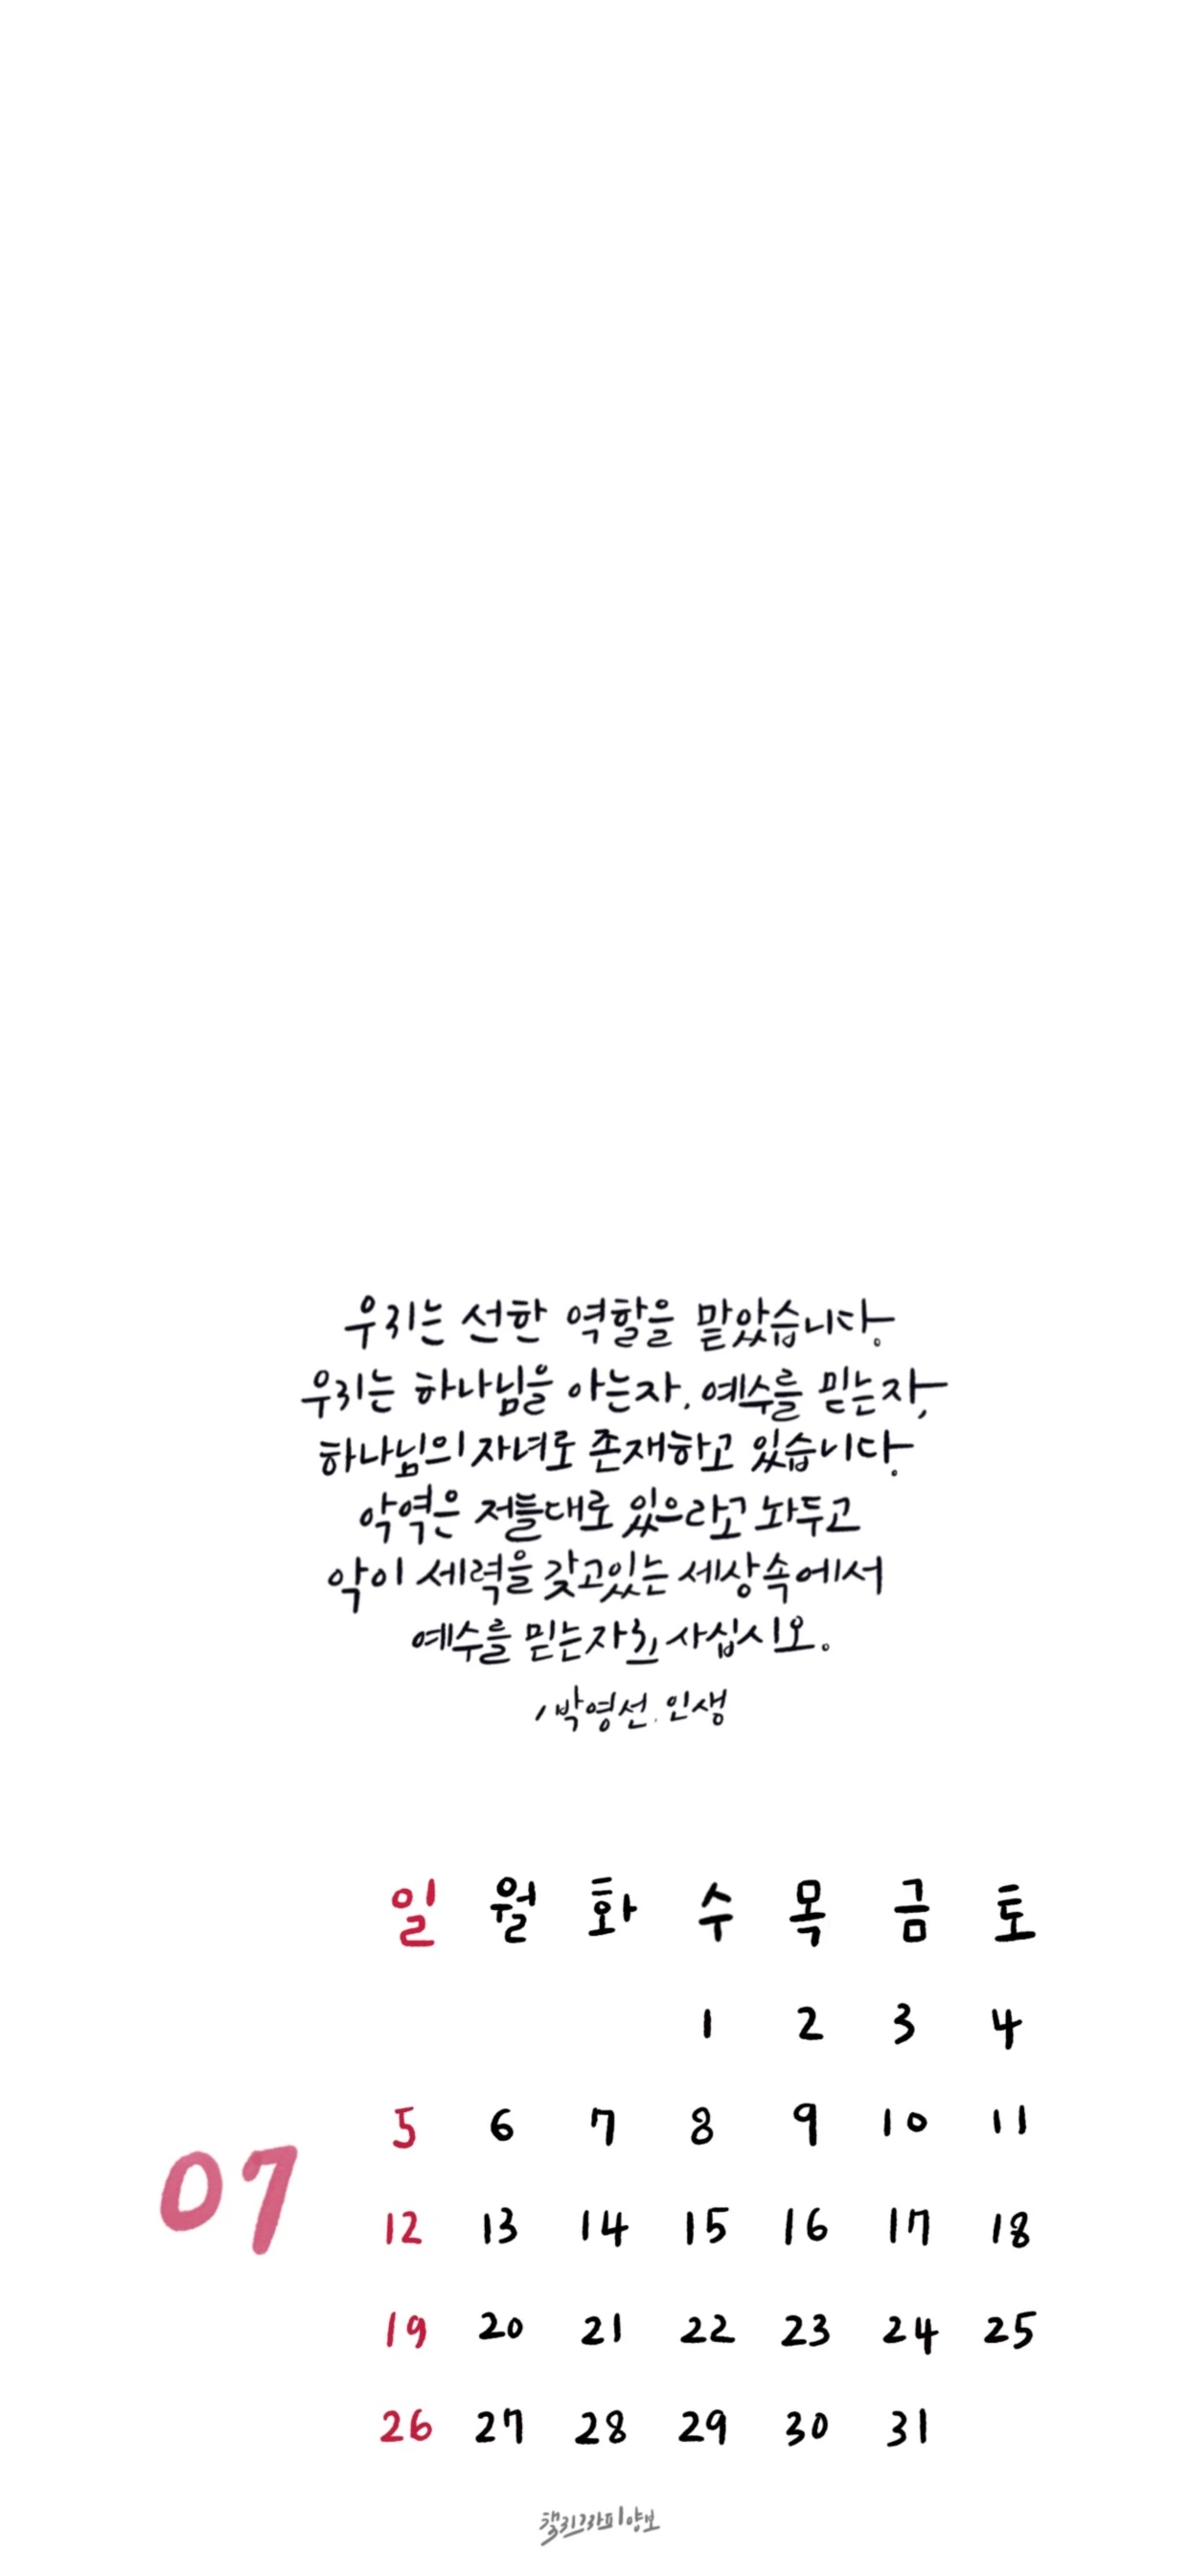 우리는 선한 역할을 맡았습니다.
우리는 하나님을 아는자, 예수를 믿는자,
하나님의 자녀로 존재하고 있습니다.
악역은 저들대로 있으라고 놔두고
악이 세력을 갖고있는 세상속에서
예수를 믿는자로, 사십시오.
/박영선. 인생
일 월 화 수 목 금 토
1 2 3 4
5 6 7 8 9 10 11
07
12 13 14 15 16 17 18
19 20 21 22 23 24 25
26 27 28 29 30 31
캘리그라피양보